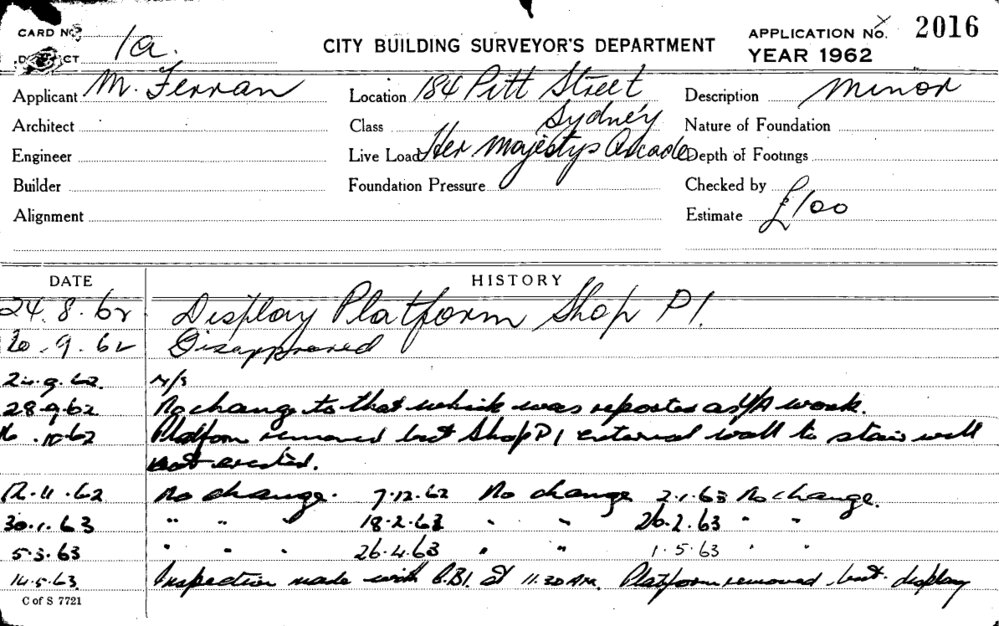 CARD No. 1a.
CITY BUILDING SURVEYOR'S DEPARTMENT
APPLICATION No. 2016
YEAR 1962
Applicant M. Ferran
Location 184 Pitt Street
Description Minor
Architect
Class Sydney
Nature of Foundation
Engineer
Live Load Her Majestys Arcade
Depth of Footings
Builder
Foundation Pressure
Checked by
Alignment
Estimate £100
DATE HISTORY
24.8.62 Display Platform Shop P1.
20.9.62 Disapproved
9.62. N/S
28.9.62 No change to that which was reported as work.
10.62 Platform removed but Shop P1 external wall to stair well
not erected.
12.11.62 No change. 7.12.62 No change 2.1.63 No change.
30.1.63 " " 18.2.63 " " 26.2.63 " "
5.3.63 " " 26.4.63 " " 1.5.63 " "
14.5.63 Inspection made with B.B.I. at 11.30 AM. Platform removed but display
C of S 7721